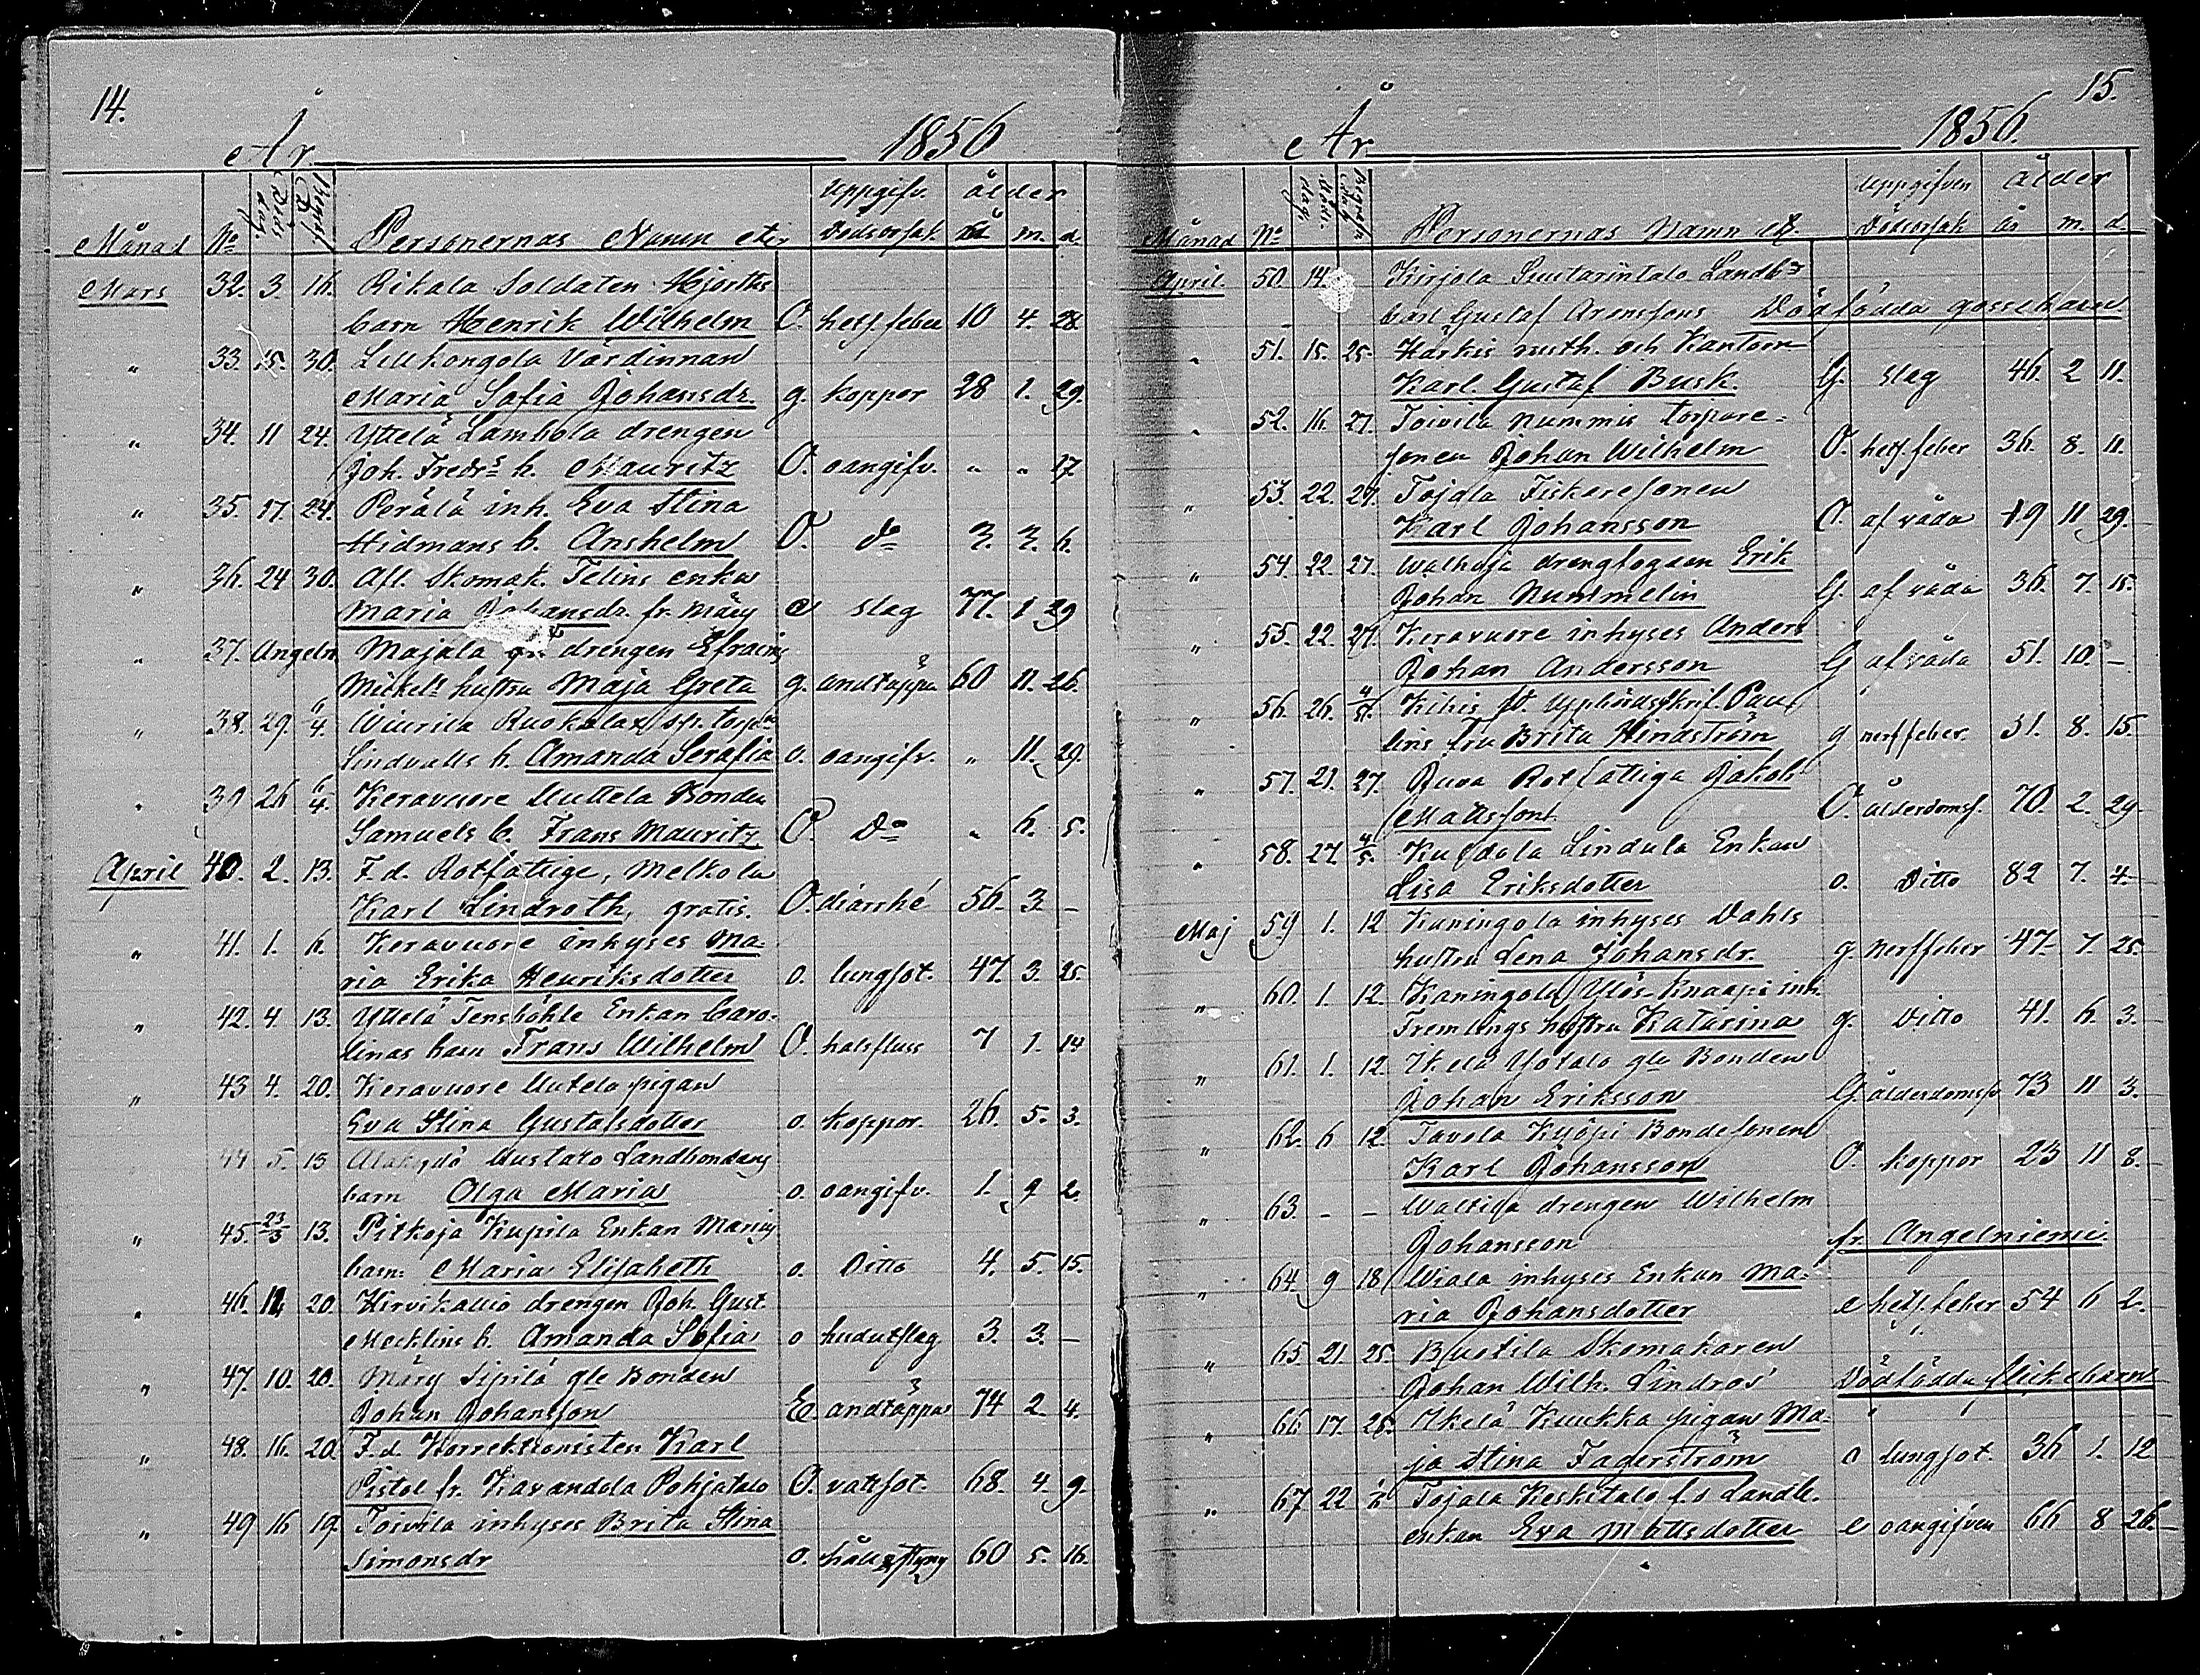 14.
År 1856
Månad No Döds dag. Begr. D. Personernas Namn etc. Uppgifv. Dödsorsak. ålder år m. d.
Mars 32. 3. 16. Rikala Soldaten Hjorttes
barn Henrik Wilhelm O. hetf. feber 10 4. 28.
" 33. 15. 30. Lillkongola Värdinnan
Maria Sofia Johansdr. g. koppor 28 1. 29.
" 34. 11 24. Yttelä Lamhola drengen
Joh. Fredrs b. Mauritz O. oangifv. " " 17
" 35. 17. 24. Perälä inh. Eva Stina
Hidmans b. Anshelm O. do 3. 3. 6.
" 36. 24 30. Afl. Skomak. Telins enka
Maria Johansdr. fr. Märy e slag 77. 1 29
" 37. Angeln. Majala drengen Efraim
Mickels hustru Maja Greta g. andtäppa 60 11. 26.
" 38. 29. 6/4. Wiurila Ruokolax sp. torp.
Lindvalls b. Amanda Serafia o. oangifv. " 11. 29.
" 39 26 6/4. Keravuore Uuttela Bonden
Samuels b. Frans Mauritz O. Do " 6. 5.
April 40. 2. 13. F.d. Rotfattige, Melkola
Karl Lindroth, gratis. O. diarrhé 56. 3. -
" 41. 1. 6. Keravuore inhyses Ma-
ria Erika Henriksdotter o. lungsot. 47. 3. 25.
" 42. 4. 13. Yttelä Tensböhle Enkan Caro-
linas barn Frans Wilhelm O. halsfluss 7 1. 14
" 43 4. 20. Keravuore Uutela pigan
Eva Stina Gustafsdotter o. koppor. 26. 5. 3.
" 44 5. 13 Alakydö Uustalo Landbondens
barn Olga Maria o. oangifv. 1. 9 2.
" 45. 23/3 13. Pitkoja Kupila Enkan Marias
barn Maria Elisabeth o. Ditto 4. 5. 15.
" 46. 12. 20. Hirvikallio drengen Joh. Gust.
Mecklins b. Amanda Sofia o hudutslag 3. 3. -
" 47. 10. 20. Märy Sipilä gle Bonden
Johan Johansson E. andtäppa 74 2. 4.
" 48. 16. 20. F.d. Korrektionisten Karl
Pistol fr. Kavandola Pohjatalo O. vattsot. 68. 4 9.
" 49 16 19. Toivila inhyses Brita Stina
Simonsdr o. håll & styng 60 5. 16.
15.
År 1856.
Månad No Döds dag. Begrafn. dag Personernas Namn etc. Uppgifven Dödsorsak ålder år m. d.
April. 50. 14. Kirjola Suutarintalo Landb.
barl Gustaf Arensfons Dödfödda gossebarn
" 51. 15. 25. Harkis mith. och Kantorn
Karl Gustaf Busk. G. slag 46. 2 11.
" 52. 16. 27. Toivila Nummis torpare-
sonen Johan Wilhelm O. hetf. feber 36. 8. 11.
" 53. 22. 27. Tojala Fiskaresonen
Karl Johansson O. af våda 19 11 29.
" 54. 22. 27. Walhoja drengfogden Erik
Johan Nummelin G. af våda 36. 7. 15.
" 55. 22. 27. Keravuore inhyses Anders
Johan Andersson G af våda 51. 10. -
" 56. 26. 4/5. Kihis st. Uppbördsskrif. Pau-
lins fru Brita Hindström g nerffeber. 31. 8. 15.
" 57. 21. 27. Juva Rotfattiga Jakob
Mattsson O. ålderdomsf. 70. 2. 29.
" 58. 27. 4/5. Kusdola Lindula Enkan
Lisa Eriksdotter o. Ditto 82 7. 4.
Maj 59 1. 12 Kaningola inhyses Dahls
hustru Lena Johansdr. g. nerffeber 47. 7. 25.
" 60. 1. 12. Kaningola Ylös-Knaapi inh.
Fremlings hustru Katarina g. Ditto 41. 6. 3.
" 61. 1. 12 Ikelä Yötalo gle Bonden
Johan Eriksson G. ålderdomsf. 73 11 3.
" 62. 6 12. Tavola Kyöpi Bondesonen
Karl Johansson O. koppor 23 11 8.
" 63. - - Waltila drengen Wilhelm
Johansson fr. Angelniemi.
" 64. 9 18. Wiala inhyses Enkan Ma-
ria Johansdotter e hetf. feber 54 6 2.
" 65. 21. 25. Ruotila Skomakaren
Johan Wilh. Lindros' Dödfödda flickebarn
" 66. 17. 25. Ikelä Kuukka pigan Ma-
ja Stina Fagerström o lungsot. 36 1. 12
" 67 22 Tojala Keskitalo f.d Landb.
enkan Eva Mattsdotter e oangifven 66 8 26.